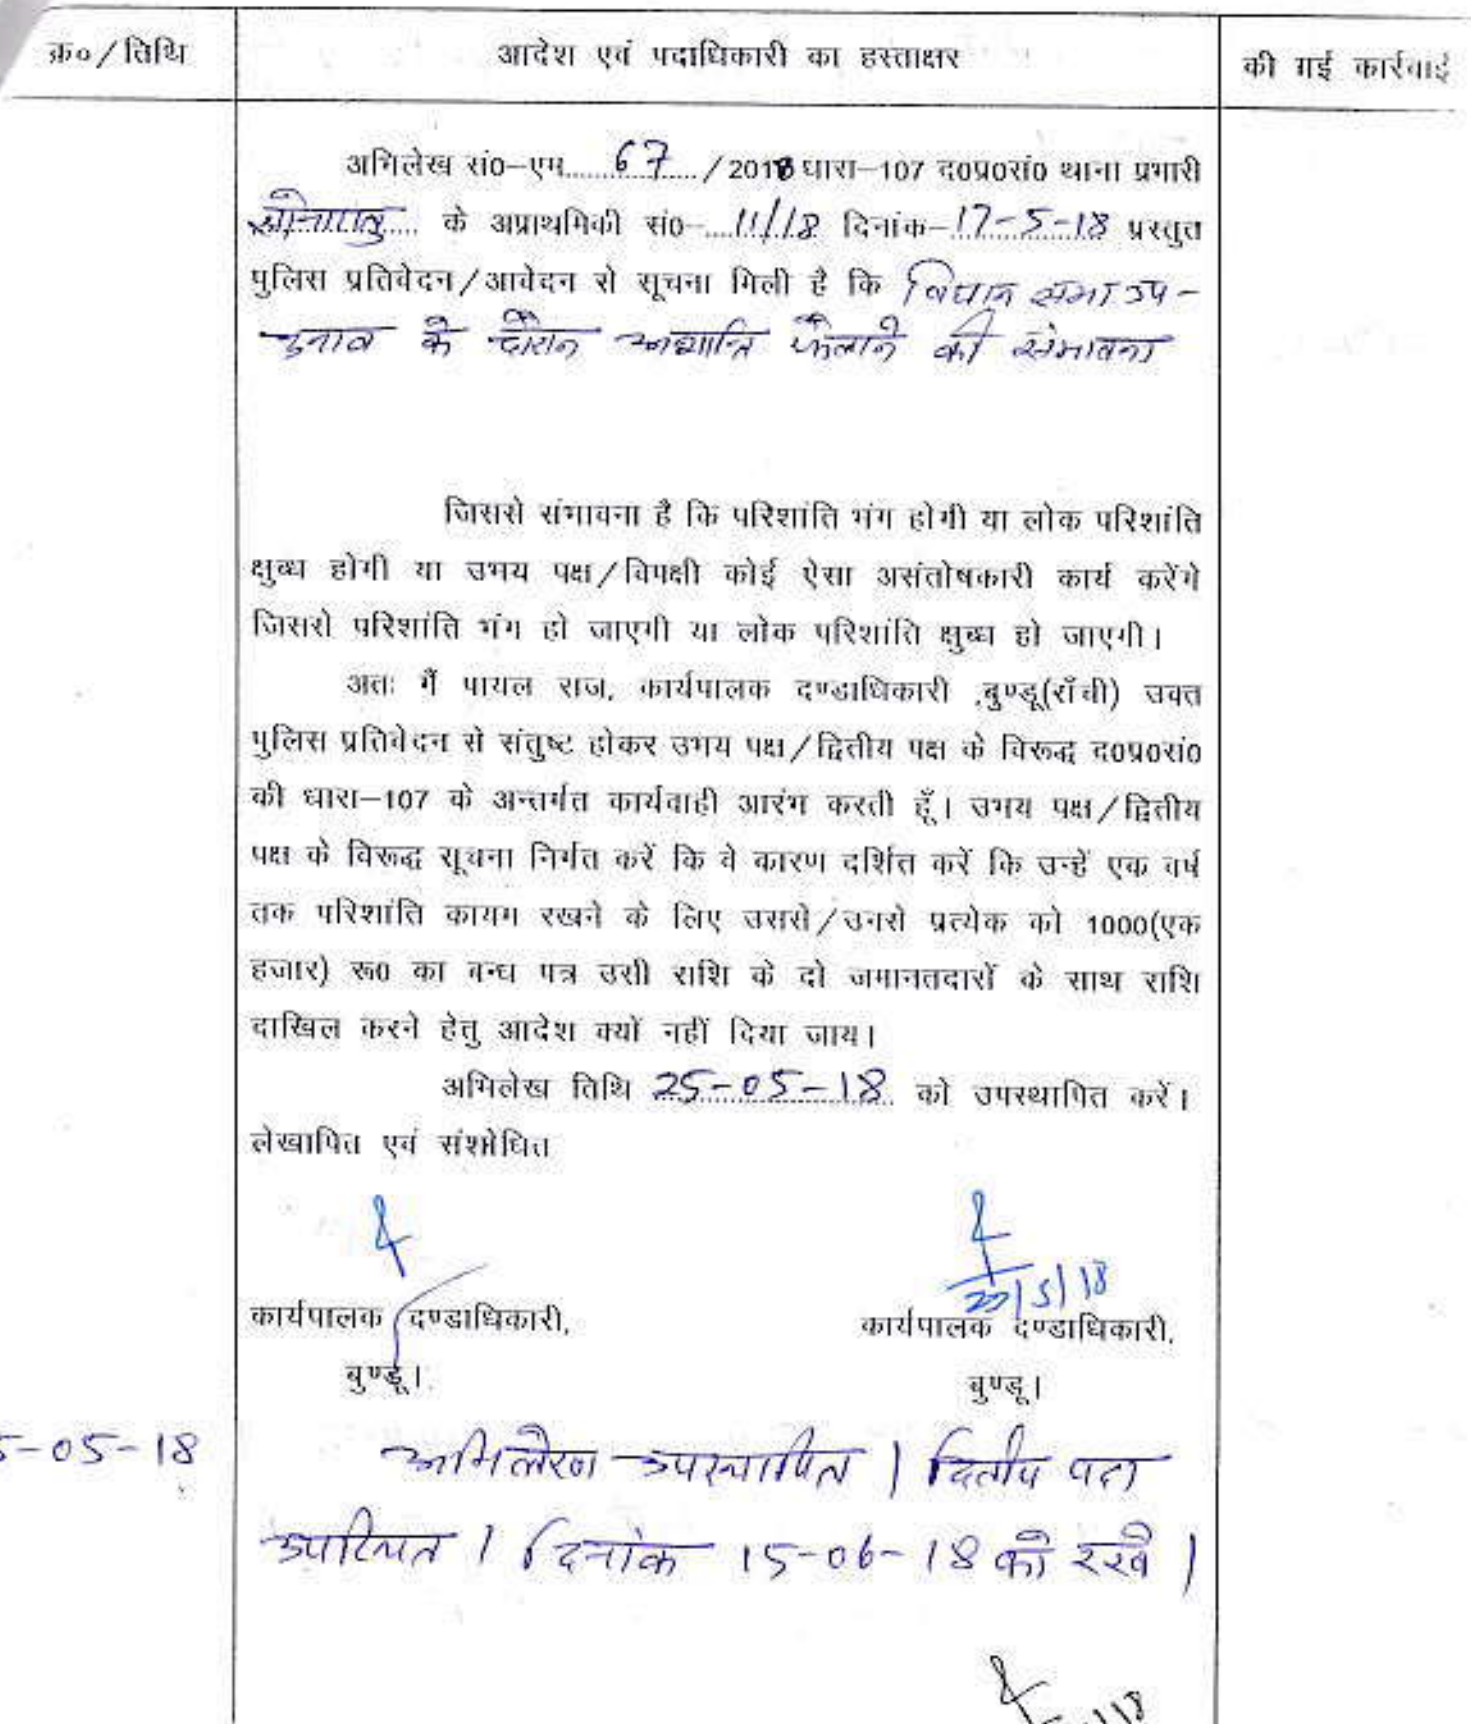 क्र०/तिथि
आदेश एवं पदाधिकारी का हस्ताक्षर
की गई कार्रवाई
अभिलेख सं0–एम......67....../2018 धारा–107 द0प्र0सं0 थाना प्रभारी
सोनाहातु..... के अप्राथमिकी सं0–....11/18 दिनांक–.17-5-18 प्रस्तुत
पुलिस प्रतिवेदन/आवेदन से सूचना मिली है कि विधान सभा उप-
चुनाव के दौरान अशान्ति फैलाने की संभावना
जिससे संभावना है कि परिशांति भंग होगी या लोक परिशांति
क्षुब्ध होगी या उभय पक्ष/विपक्षी कोई ऐसा असंतोषकारी कार्य करेंगे
जिससे परिशांति भंग हो जाएगी या लोक परिशांति क्षुब्ध हो जाएगी।
अतः मैं पायल राज, कार्यपालक दण्डाधिकारी ,बुण्डू(राँची) उक्त
पुलिस प्रतिवेदन से संतुष्ट होकर उभय पक्ष/द्वितीय पक्ष के विरूद्ध द0प्र0सं0
की धारा–107 के अन्तर्गत कार्यवाही आरंभ करती हूँ। उभय पक्ष/द्वितीय
पक्ष के विरूद्ध सूचना निर्गत करें कि वे कारण दर्शित करें कि उन्हें एक वर्ष
तक परिशांति कायम रखने के लिए उससे/उनसे प्रत्येक को 1000(एक
हजार) रू0 का बन्ध पत्र उसी राशि के दो जमानतदारों के साथ राशि
दाखिल करने हेतु आदेश क्यों नहीं दिया जाय।
अभिलेख तिथि 25-05-18 को उपस्थापित करें।
लेखापित एवं संशोधित
20/5/18
कार्यपालक दण्डाधिकारी,
कार्यपालक दण्डाधिकारी,
बुण्डू।
बुण्डू।
5-05-18
अभिलेख उपस्थापित । द्वितीय पक्ष
उपस्थित । दिनांक 15-06-18 को रखें ।